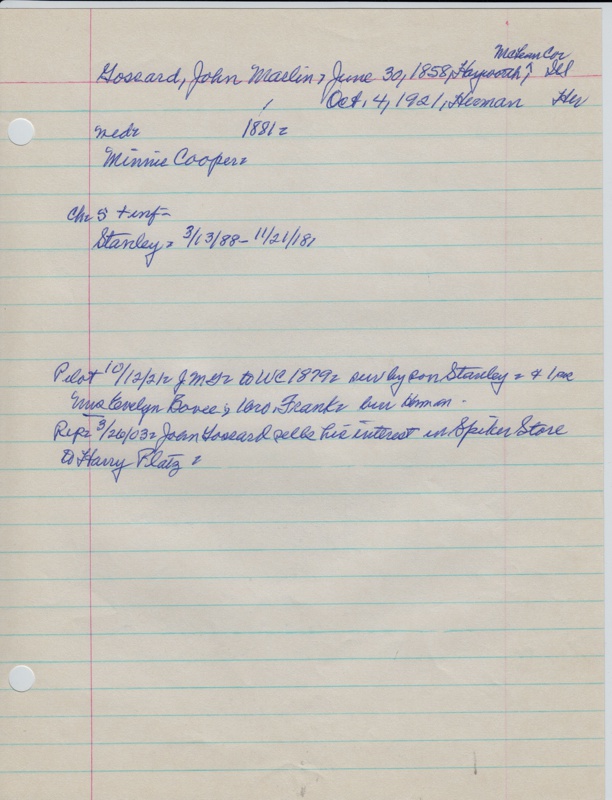 McLean Co
Gossard, John Maclin, June 30, 1858, Heyworth, Ill
Oct. 4, 1921, Herman Her
med 1881
Minnie Cooper
Ch 5 + inf-
Stanley 3/13/88 - 11/21/181
Pilot 10/12/21 J M G to WC 1879 surv by son Stanley & 1
Mrs Evelyn Bovee, bro. Frank bur Herman.
Rep 3/26/03 John Gossard sells his interest in Spiker Store
to Harry Platz